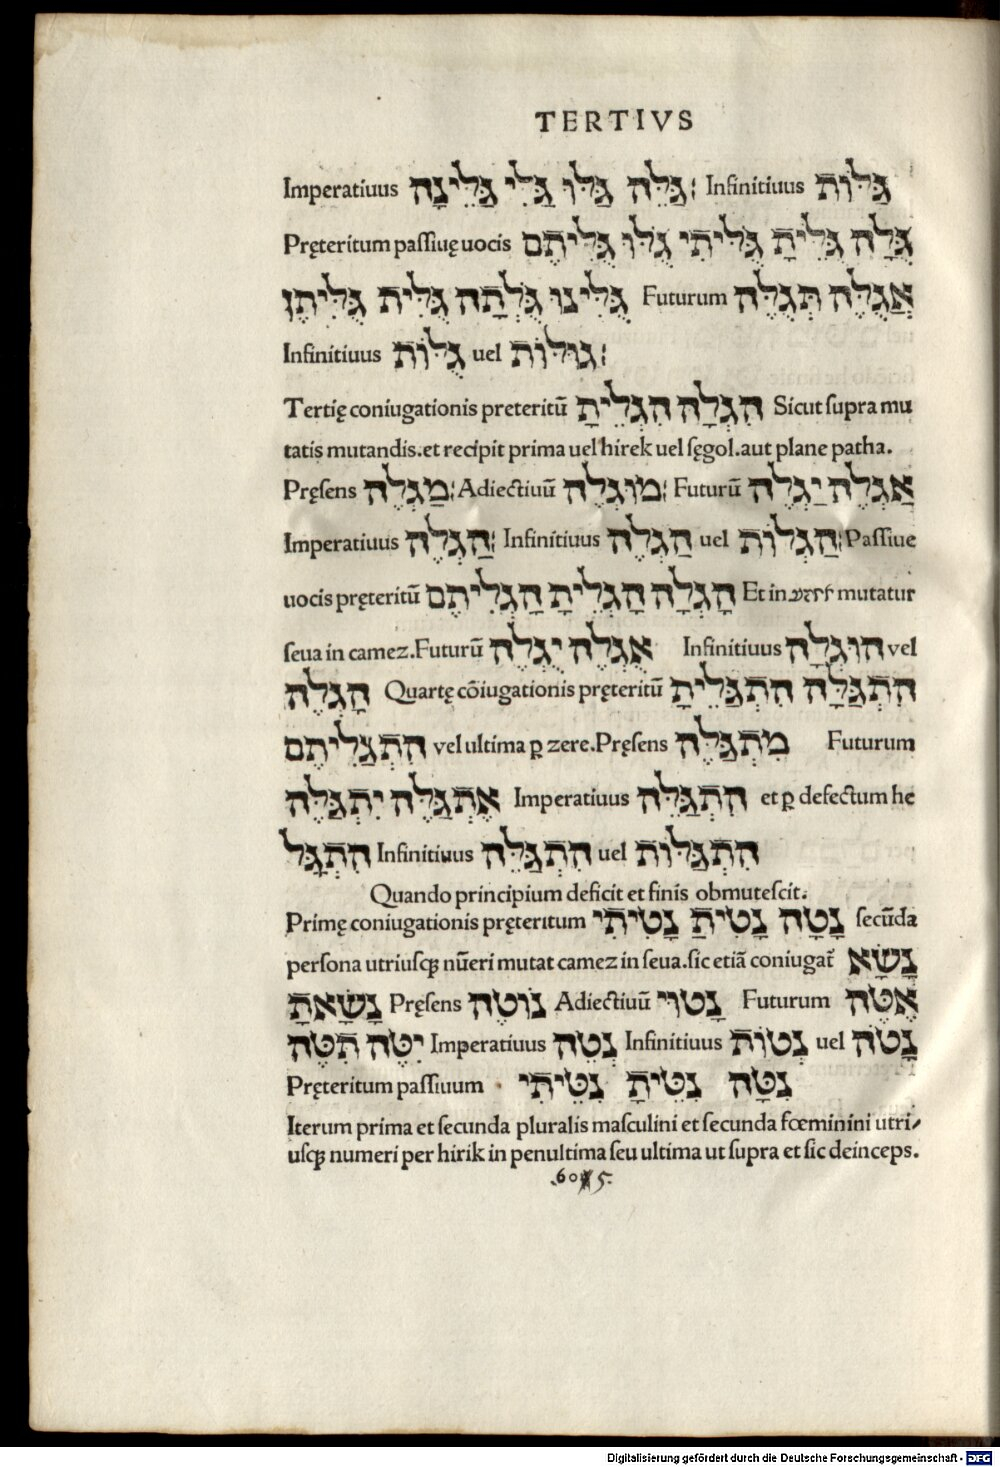 TERTIVS
Imperatiuus גַּלֵּה גַּלּוּ גַּלִּי גַּלֵּינָה: Infinitiuus גַּלּוֹת
Pręteritum passiuę uocis גֻּלָּה גֻּלֵּיתָ גֻּלֵּיתִי גֻּלּוּ גֻּלִּיתֶם
גֻּלִּינוּ גֻּלְּתָה גֻּלִּית גֻּלִּיתֶן Futurum אֲגֻלֶּה תְּגֻלֶּה
Infinitiuus גֻּלּוֹת uel גוּלּוֹת:
Tertię coniugationis preteritū הִגְלָה הִגְלֵיתָ Sicut supra mu
tatis mutandis.et recipit prima uel hirek uel sęgol.aut plane patha.
Pręsens מַגְלֶה: Adiectiuū מוּגְלֶה: Futurū אַגְלֶה יַגְלֶה
Imperatiuus הַגְלֵה: Infinitiuus הַגְלֵה uel הַגְלוֹת: Passiue
uocis pręteritū הָגְלָה הָגְלֵיתָ הָגְלִיתֶם Et in mutatur
seua in camez.Futurū אֻגְלֶה יֻגְלֶה Infinitiuus הוּגְלָה vel
הָגְלֵה Quartę cōiugationis pręteritū הִתְגַּלָּה הִתְגַּלֵּיתָ
הִתְגַּלִּיתֶם vel ultima ꝑ zere.Pręsens מִתְגַּלֶּה Futurum
אֶתְגַּלֶּה יִתְגַּלֶּה Imperatiuus הִתְגַּלֵּה et ꝑ defectum he
הִתְגָּל Infinitiuus הִתְגַּלֵּה uel הִתְגַּלּוֹת
Quando principium deficit et finis obmutescit.
Primę coniugationis pręteritum נָטָה נָטִיתַ נָטִיתִי secūda
persona utriusqꝫ nūeri mutat camez in seua.sic etiā coniugat̃ נָשָׂא
נָשָׂאתָ Pręsens נוֹטֶה Adiectiuū נָטוּי Futurum אֶטֶּה
יִטֶּה תִּטֶּה Imperatiuus נְטֵה Infinitiuus נְטוֹת uel נָטֹה
Pręteritum passiuum נִטָּה נִטֵּיתָ נִטֵּיתִי
Iterum prima et secunda pluralis masculini et secunda fœminini utri⸗
usqꝫ numeri per hirik in penultima seu ultima ut supra et sic deinceps.
Digitalisierung gefördert durch die Deutsche Forschungsgemeinschaft - DFG